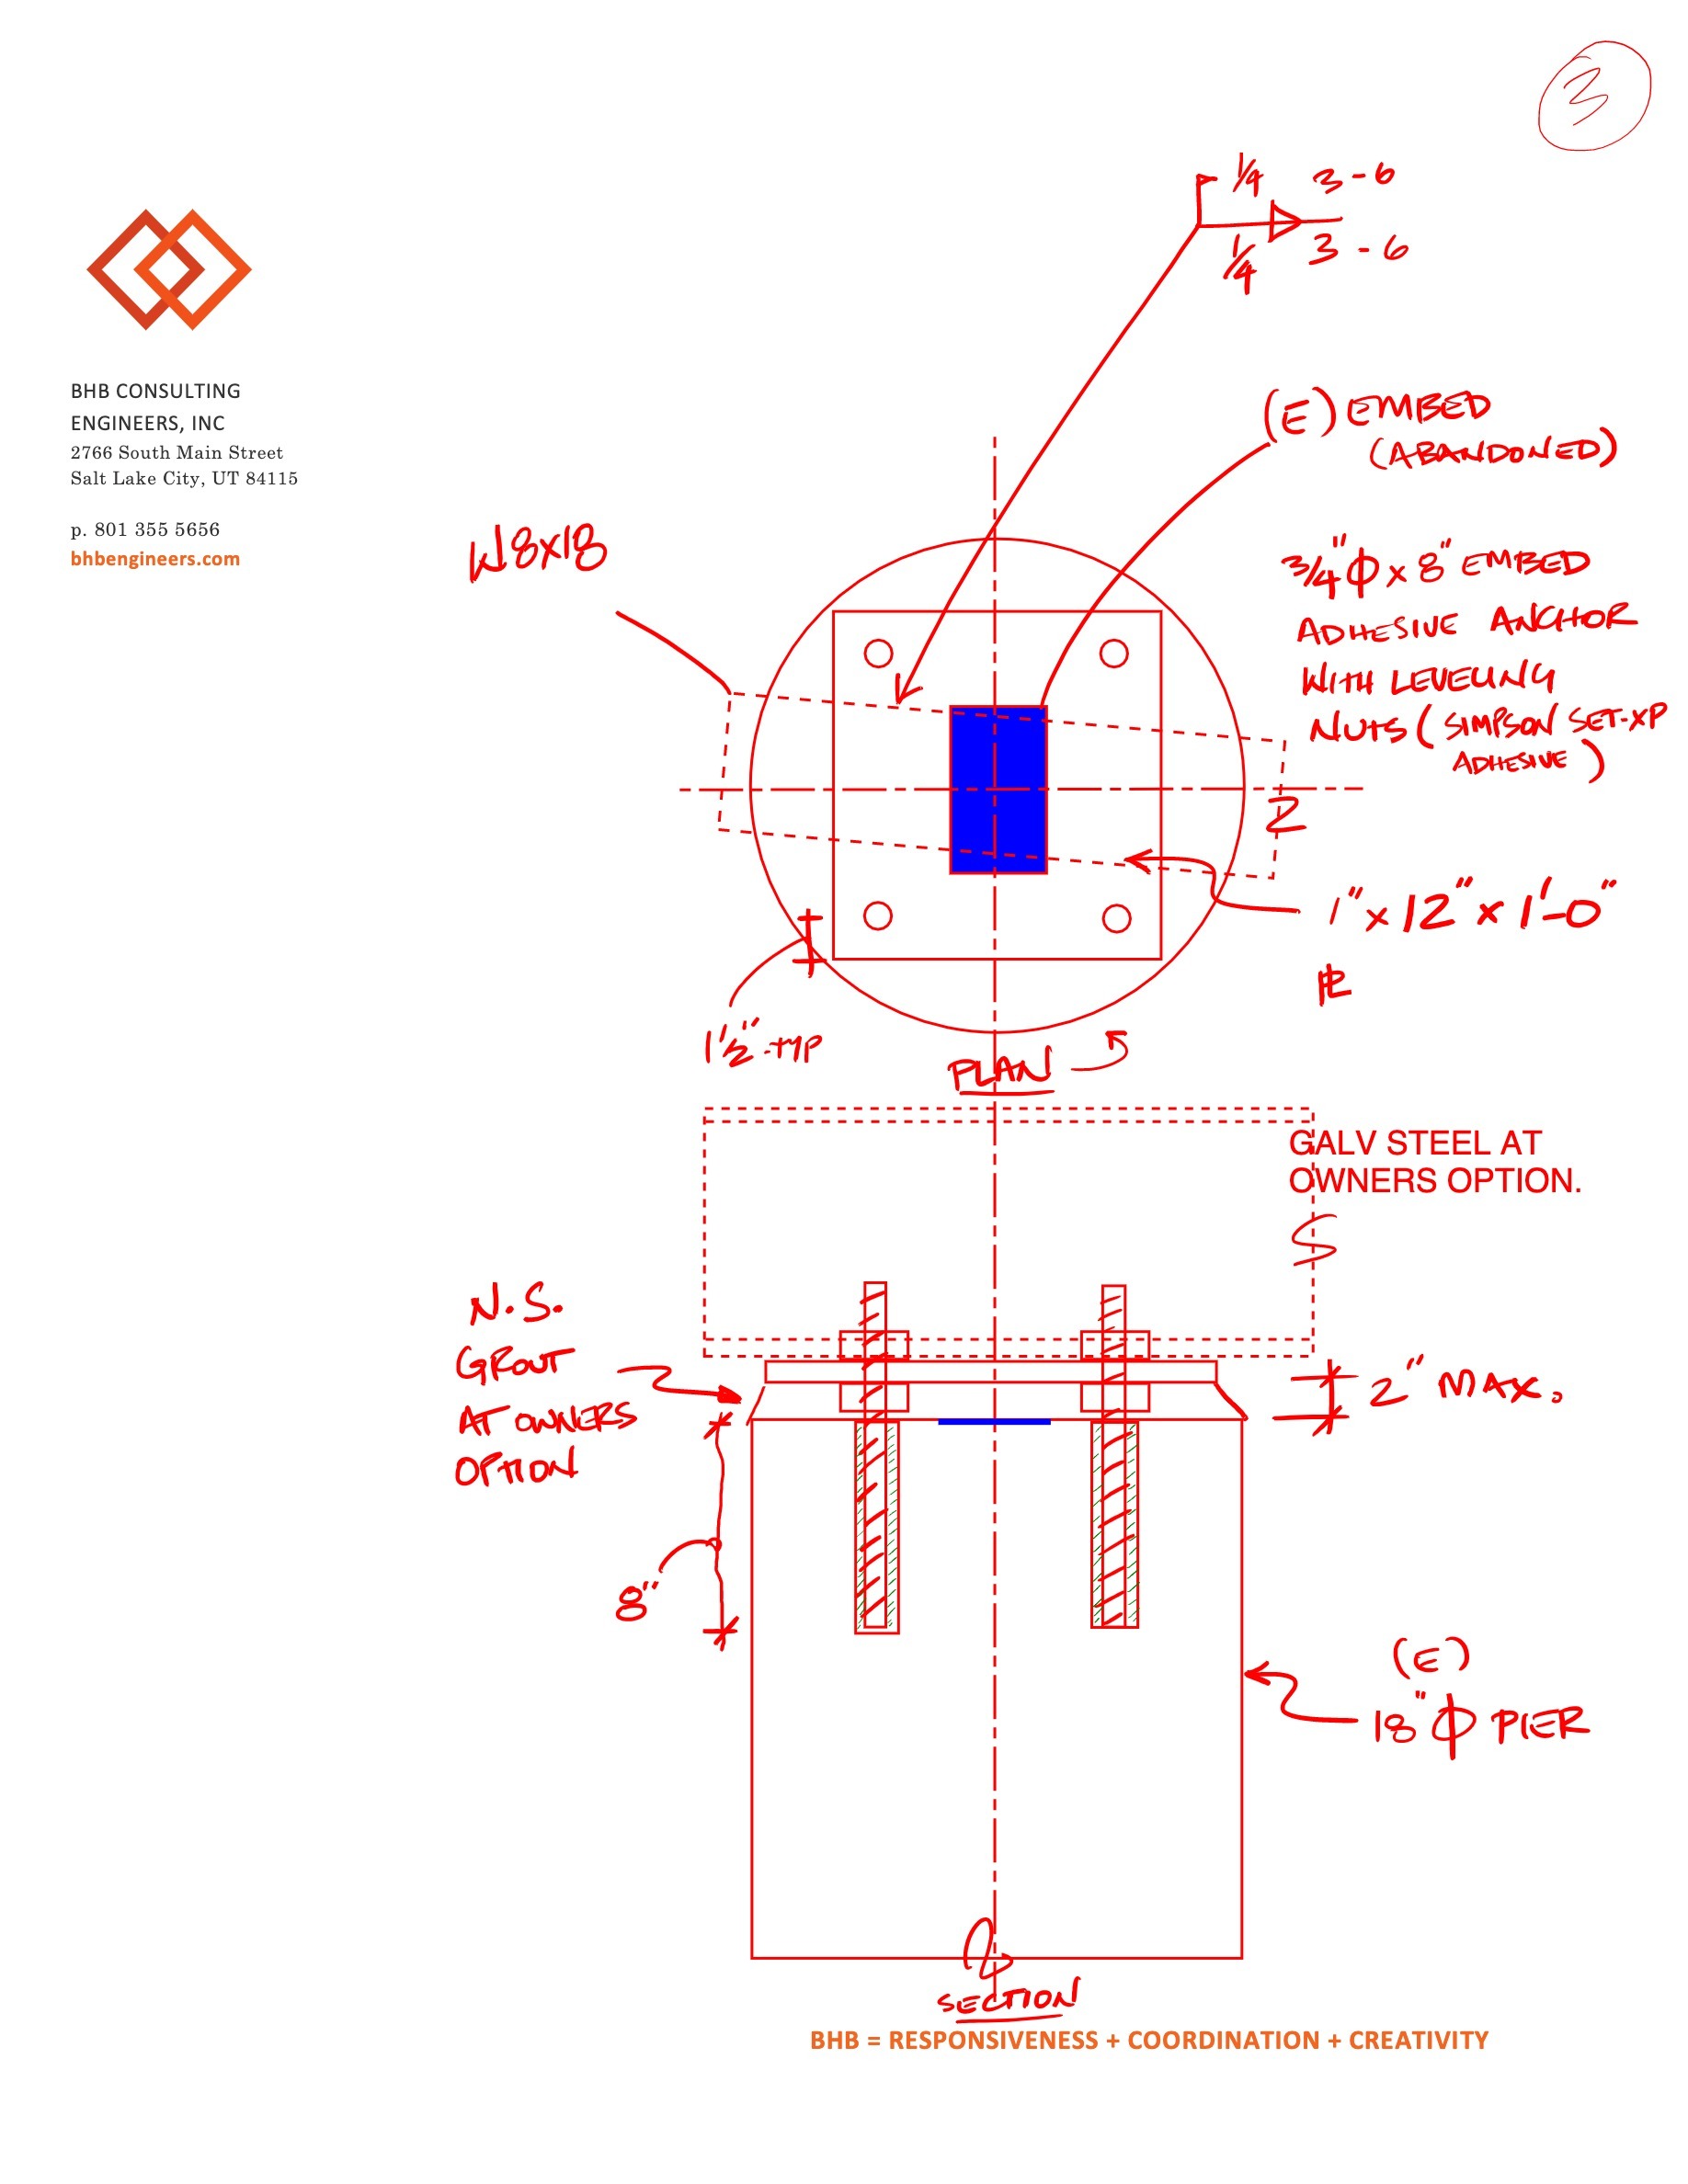 3
1/4 3-6
1/4 3-6
BHB CONSULTING
ENGINEERS, INC
2766 South Main Street
Salt Lake City, UT 84115
p. 801 355 5656
bhbengineers.com
(E) EMBED
(ABANDONED)
W8x18
3/4"Φ x 8" EMBED
ADHESIVE ANCHOR
WITH LEVELING
NUTS (SIMPSON SET-XP
ADHESIVE)
1" x 12" x 1'-0"
PL
1 1/2" TYP
PLAN
GALV STEEL AT
OWNERS OPTION.
N.S.
GROUT
AT OWNERS
OPTION
2" MAX.
8"
(E)
18"Φ PIER
SECTION
BHB = RESPONSIVENESS + COORDINATION + CREATIVITY